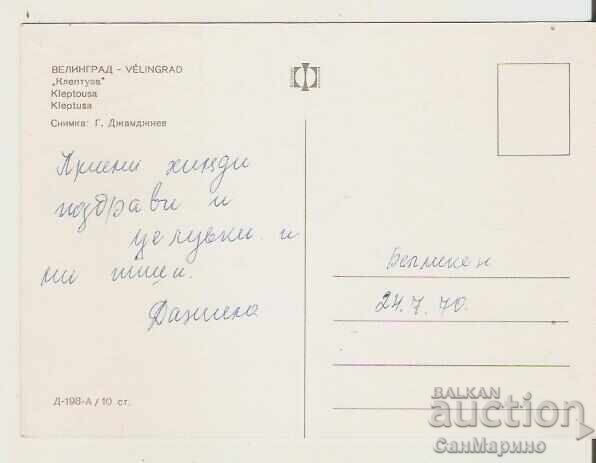 ВЕЛИНГРАД – VÉLINGRAD
„Клептуза"
Kleptousa
Kleptusa
Снимка: Г. Джамджиев
Приеми хиляди
поздрави и
целувки и
ми пиши.
Даниела
24.7.70.
Д-198-А / 10 ст.
BALKAN
auction
СанМарино